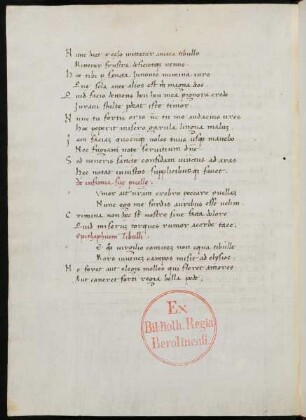 Nunc licet e celo mittatur amica tibullo
Mittetur frustra deficietque venus
Hec tibi per sancta iunonis numina iuro
Que sola ante alios est mihi magna deos
Quid facio demens heu heu mea pignora credo
Iuravi stulte proderat iste timor
Nunc tu fortis eris nunc tu me audacius ures
Hoc peperit misero garula lingua malum
Iam facias quodcunque voles tuus usque manebo
Nec fugiam note servitium domine
Sed veneris sancte considam vinctus ad aras
Hec notat iniustos supplicibusque favet
De infamia sue puelle
Rumor ait nostram crebro peccare puellam
Nunc ego me surdis auribus esse velim
Crimina non hec sunt nostro sine facta dolore
Quid miserum torques rumor acerbe tace
Epitaphium Tibulli
Te quoque virgilio comitem non equa tibulle
Mors iuvenem campos misit ad elysios
Ne foret aut elegis molles qui fleret amores
Aut caneret forti regia bella pede
Ex
Biblioth. Regia
Berolinensi.